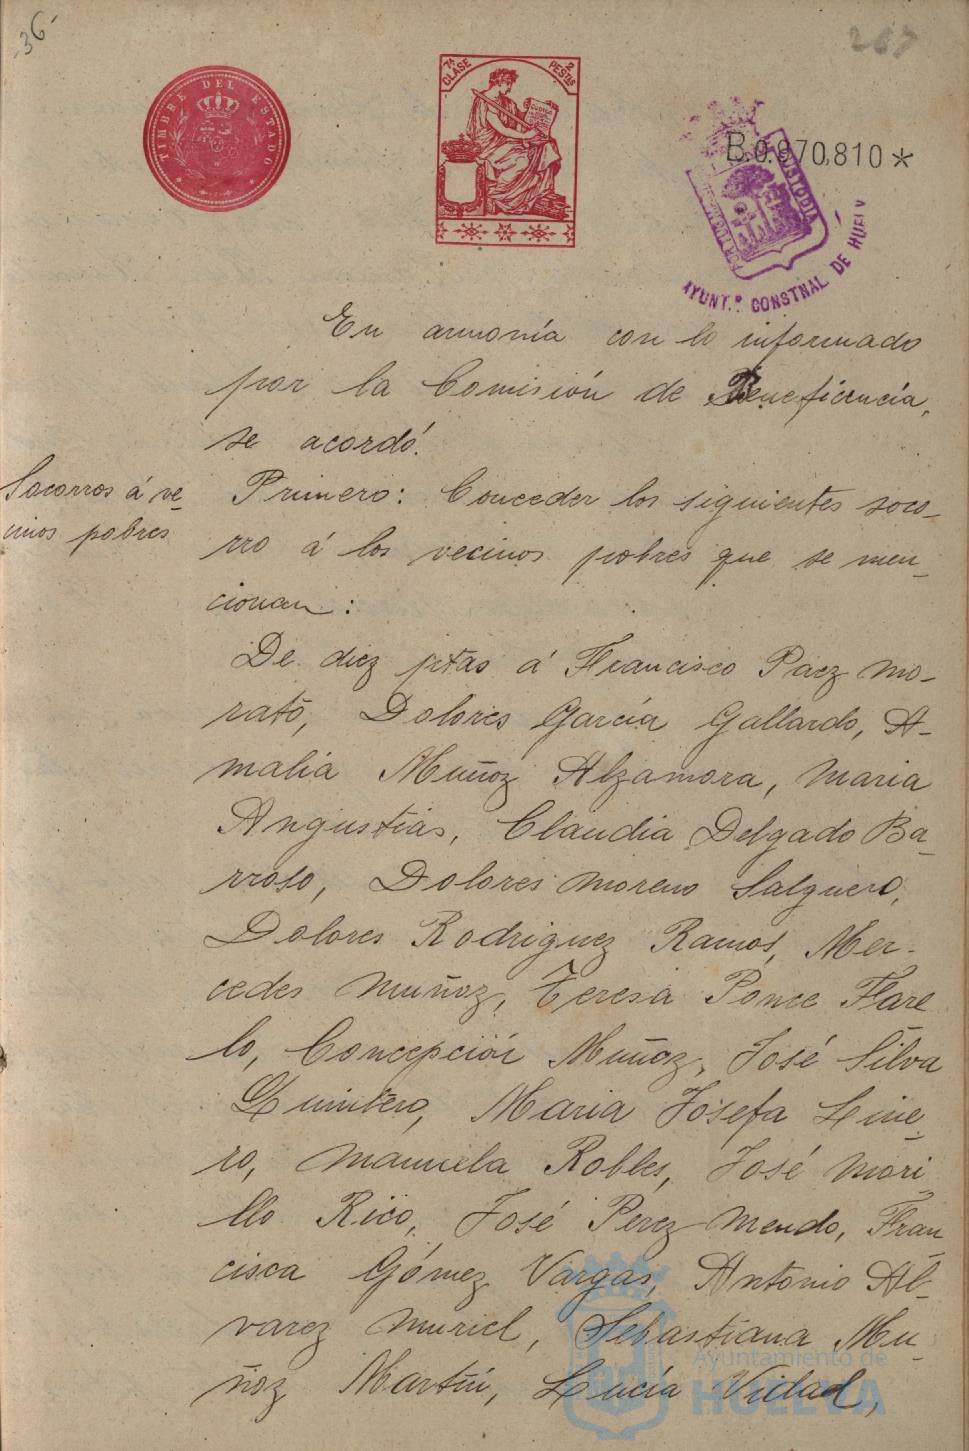 -36-
267
TIMBRE DEL ESTADO
7ª CLASE
2 PESTAS
B.0.970,810*
PORTUS MARIS
CUSTODIA
AYUNT.º CONSTNAL DE HUELV
En armonía con lo informado
por la Comisión de Beneficencia,
se acordó.
Socorros á ve-
cinos pobres
Primero: Conceder los siguientes soco-
rro á los vecinos pobres que se men-
cionan:
De diez ptas á Francisco Paez Mo-
rato, Dolores García Gallardo, A-
malia Muñoz Alzamora, Maria
Angustias, Claudia Delgado Ba-
rroso, Dolores Moreno Salguero,
Dolores Rodriguez Ramos, Mer-
cedes Muñoz, Teresa Ponce Fare
lo, Concepción Muñoz, José Silva
Quintero, Maria Josefa Line-
ro, Manuela Robles, José Mori
llo Rico, José Perez Mendo, Fran
cisca Gómez Vargas, Antonio Al-
varez Muriel, Sebastiana Mu-
ñoz Martín, Lucía Vidal,
Ayuntamiento de
HUELVA